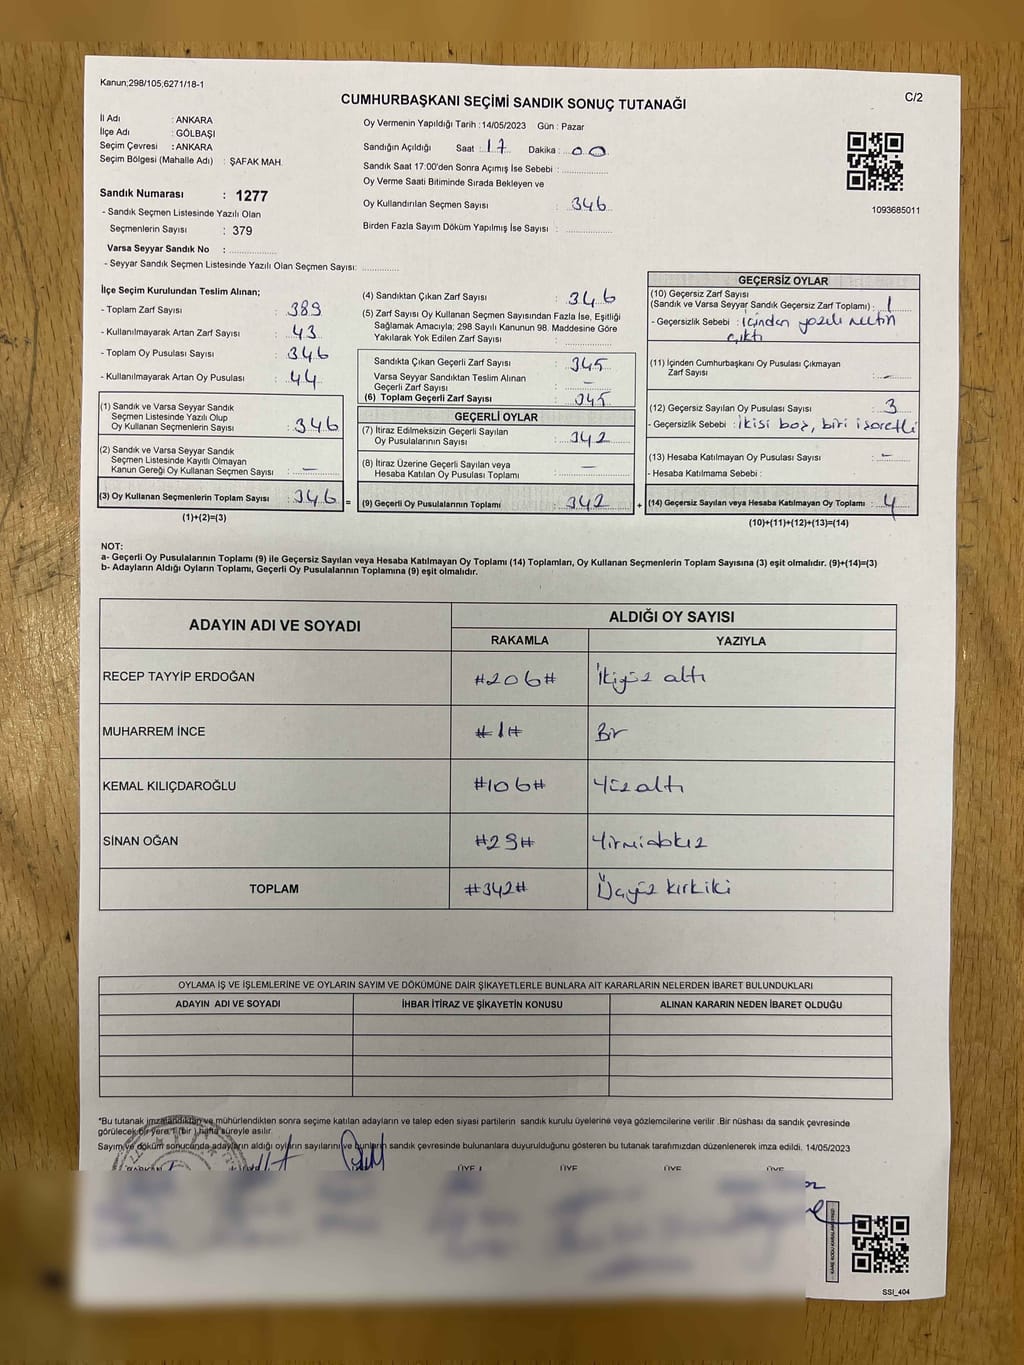 Kanun;298/105;6271/18-1
C/2
CUMHURBAŞKANI SEÇİMİ SANDIK SONUÇ TUTANAĞI
İl Adı : ANKARA
İlçe Adı : GÖLBAŞI
Seçim Çevresi : ANKARA
Seçim Bölgesi (Mahalle Adı) : ŞAFAK MAH.
Sandık Numarası : 1277
- Sandık Seçmen Listesinde Yazılı Olan
Seçmenlerin Sayısı : 379
Varsa Seyyar Sandık No :
- Seyyar Sandık Seçmen Listesinde Yazılı Olan Seçmen Sayısı:
Oy Vermenin Yapıldığı Tarih : 14/05/2023 Gün : Pazar
Sandığın Açıldığı Saat : 17 Dakika : 00
Sandık Saat 17.00'den Sonra Açılmış İse Sebebi :
Oy Verme Saati Bitiminde Sırada Bekleyen ve
Oy Kullandırılan Seçmen Sayısı : 346
Birden Fazla Sayım Döküm Yapılmış İse Sayısı :
1093685011
İlçe Seçim Kurulundan Teslim Alınan;
- Toplam Zarf Sayısı : 389
- Kullanılmayarak Artan Zarf Sayısı : 43
- Toplam Oy Pusulası Sayısı : 346
- Kullanılmayarak Artan Oy Pusulası : 44
(1) Sandık ve Varsa Seyyar Sandık
Seçmen Listesinde Yazılı Olup
Oy Kullanan Seçmenlerin Sayısı : 346
(2) Sandık ve Varsa Seyyar Sandık
Seçmen Listesinde Kayıtlı Olmayan
Kanun Gereği Oy Kullanan Seçmen Sayısı : –
(3) Oy Kullanan Seçmenlerin Toplam Sayısı : 346 =
(1)+(2)=(3)
(4) Sandıktan Çıkan Zarf Sayısı : 346
(5) Zarf Sayısı Oy Kullanan Seçmen Sayısından Fazla İse, Eşitliği
Sağlamak Amacıyla; 298 Sayılı Kanunun 98. Maddesine Göre
Yakılarak Yok Edilen Zarf Sayısı :
Sandıkta Çıkan Geçerli Zarf Sayısı : 345
Varsa Seyyar Sandıktan Teslim Alınan
Geçerli Zarf Sayısı : –
(6) Toplam Geçerli Zarf Sayısı : 345
GEÇERLİ OYLAR
(7) İtiraz Edilmeksizin Geçerli Sayılan
Oy Pusulalarının Sayısı : 342
(8) İtiraz Üzerine Geçerli Sayılan veya
Hesaba Katılan Oy Pusulası Toplamı : –
(9) Geçerli Oy Pusulalarının Toplamı : 342 +
GEÇERSİZ OYLAR
(10) Geçersiz Zarf Sayısı
(Sandık ve Varsa Seyyar Sandık Geçersiz Zarf Toplamı) : 1
- Geçersizlik Sebebi : içinden yazılı metin
çıktı
(11) İçinden Cumhurbaşkanı Oy Pusulası Çıkmayan
Zarf Sayısı : –
(12) Geçersiz Sayılan Oy Pusulası Sayısı : 3
- Geçersizlik Sebebi : İkisi boş, biri işaretli
(13) Hesaba Katılmayan Oy Pusulası Sayısı : –
- Hesaba Katılmama Sebebi :
(14) Geçersiz Sayılan veya Hesaba Katılmayan Oy Toplamı : 4
(10)+(11)+(12)+(13)=(14)
NOT:
a- Geçerli Oy Pusulalarının Toplamı (9) ile Geçersiz Sayılan veya Hesaba Katılmayan Oy Toplamı (14) Toplamları, Oy Kullanan Seçmenlerin Toplam Sayısına (3) eşit olmalıdır. (9)+(14)=(3)
b- Adayların Aldığı Oyların Toplamı, Geçerli Oy Pusulalarının Toplamına (9) eşit olmalıdır.
ADAYIN ADI VE SOYADI
ALDIĞI OY SAYISI
RAKAMLA YAZIYLA
RECEP TAYYİP ERDOĞAN #206# İkiyüz altı
MUHARREM İNCE #1# Bir
KEMAL KILIÇDAROĞLU #106# Yüzaltı
SİNAN OĞAN #29#
TOPLAM #342# Üçyüz kırkiki
OYLAMA İŞ VE İŞLEMLERİNE VE OYLARIN SAYIM VE DÖKÜMÜNE DAİR ŞİKAYETLERLE BUNLARA AİT KARARLARIN NELERDEN İBARET BULUNDUKLARI
ADAYIN ADI VE SOYADI İHBAR İTİRAZ VE ŞİKAYETİN KONUSU ALINAN KARARIN NEDEN İBARET OLDUĞU
*Bu tutanak imzalandıktan ve mühürlendikten sonra seçime katılan adayların ve talep eden siyasi partilerin sandık kurulu üyelerine veya gözlemcilerine verilir .Bir nüshası da sandık çevresinde
görülecek bir yere, 1 (bir ) hafta süreyle asılır.
Sayım ve döküm sonucunda adayların aldığı oyların sayılarını ve bunların sandık çevresinde bulunanlara duyurulduğunu gösteren bu tutanak tarafımızdan düzenlenerek imza edildi. 14/05/2023
ÜYE ÜYE ÜYE ÜYE
SSI_404